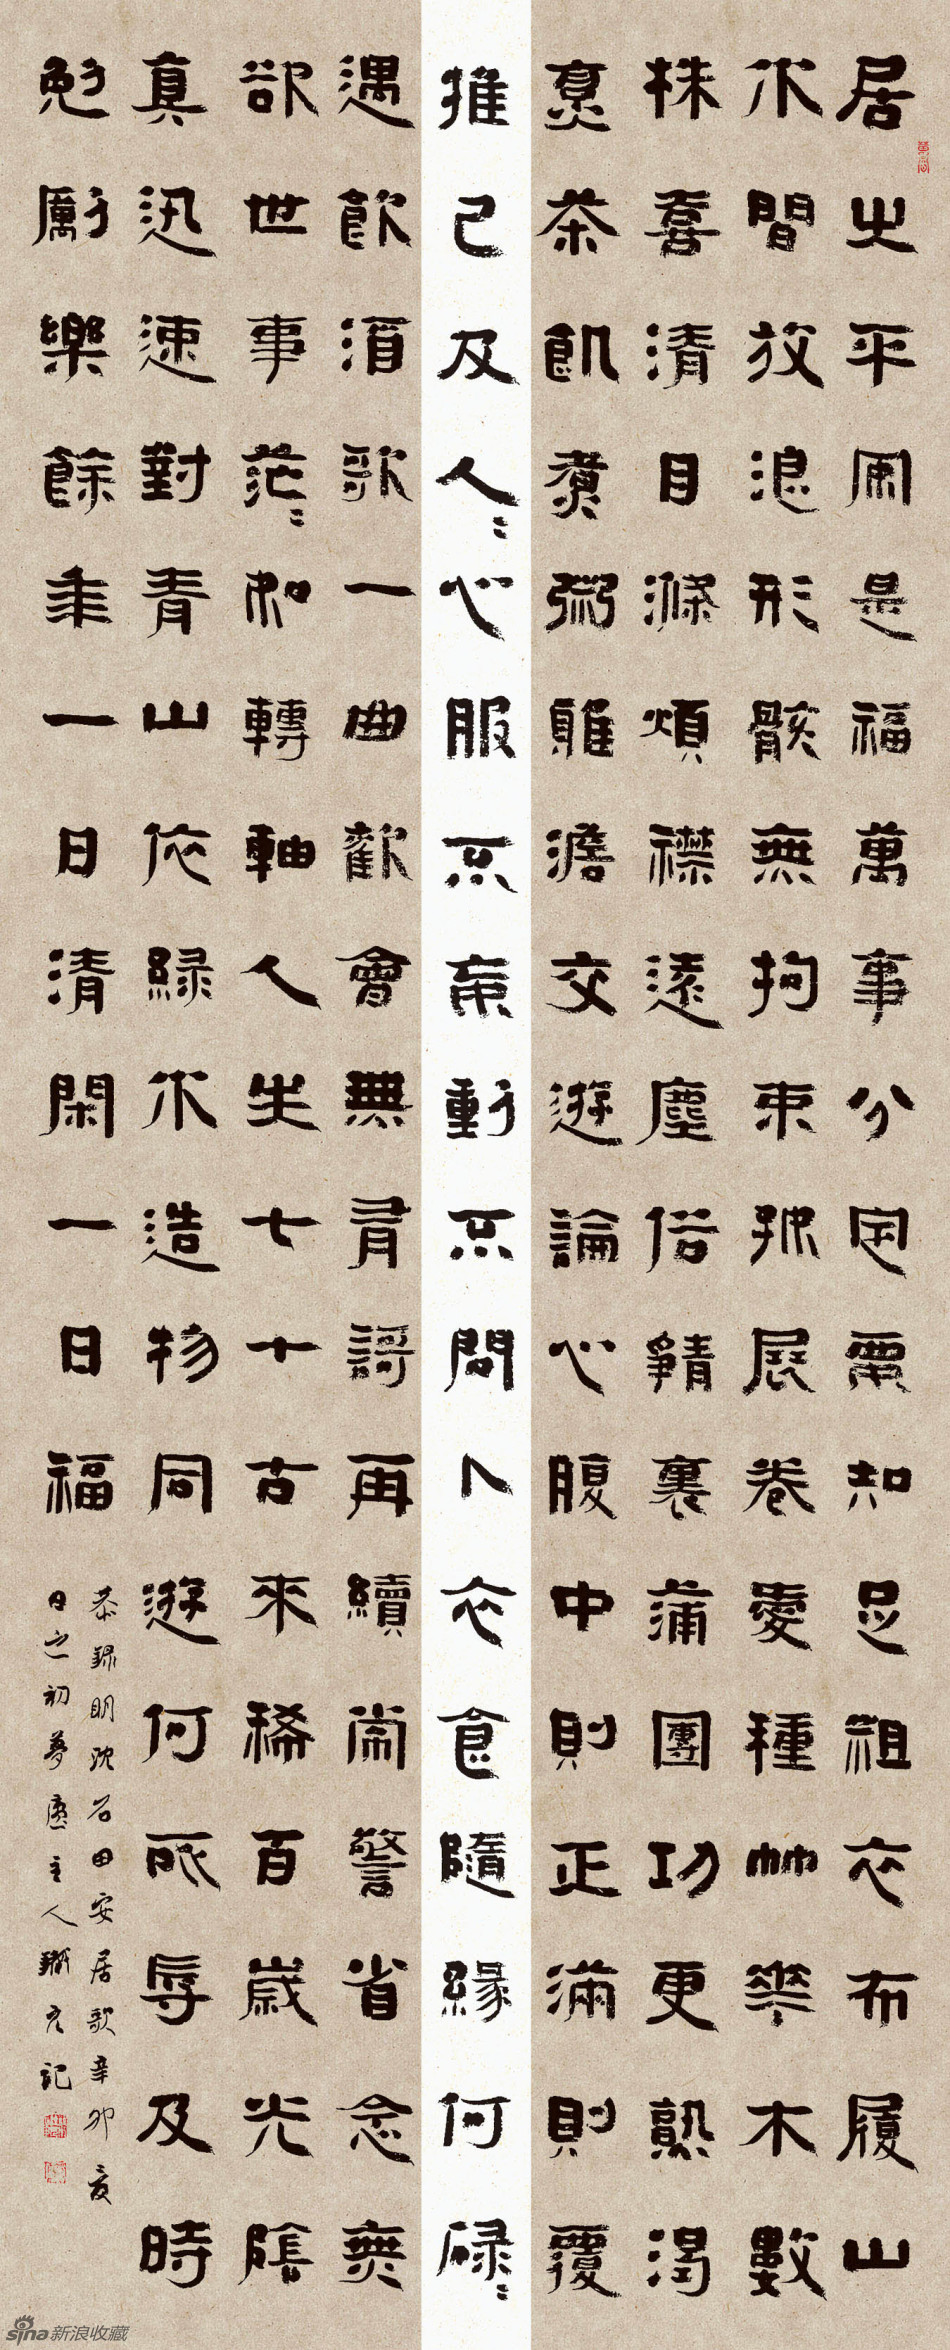 居之平安是福萬事分定要知足粗衣布履山
水間放浪形骸無拘束好展卷愛種竹花木數
株喜清目滌煩襟遠塵俗靜裏蒲團功更熟渴
烹茶飢煮粥雖澹交遊論心腹中則正滿則覆
推己及人〻心服不妄動不問卜衣食隨緣何碌〻
遇飲酒歌一曲歡會無謌再續常警省念無
欲世事茫〻如轉軸人生七十古來稀百歲光陰
真迅速對青山依綠水造物同遊何所辱及時
勉勵樂餘年一日清閑一日福
恭錄明沈石田安居歌辛卯夏
日之初夢廬主人元記
sina新浪收藏